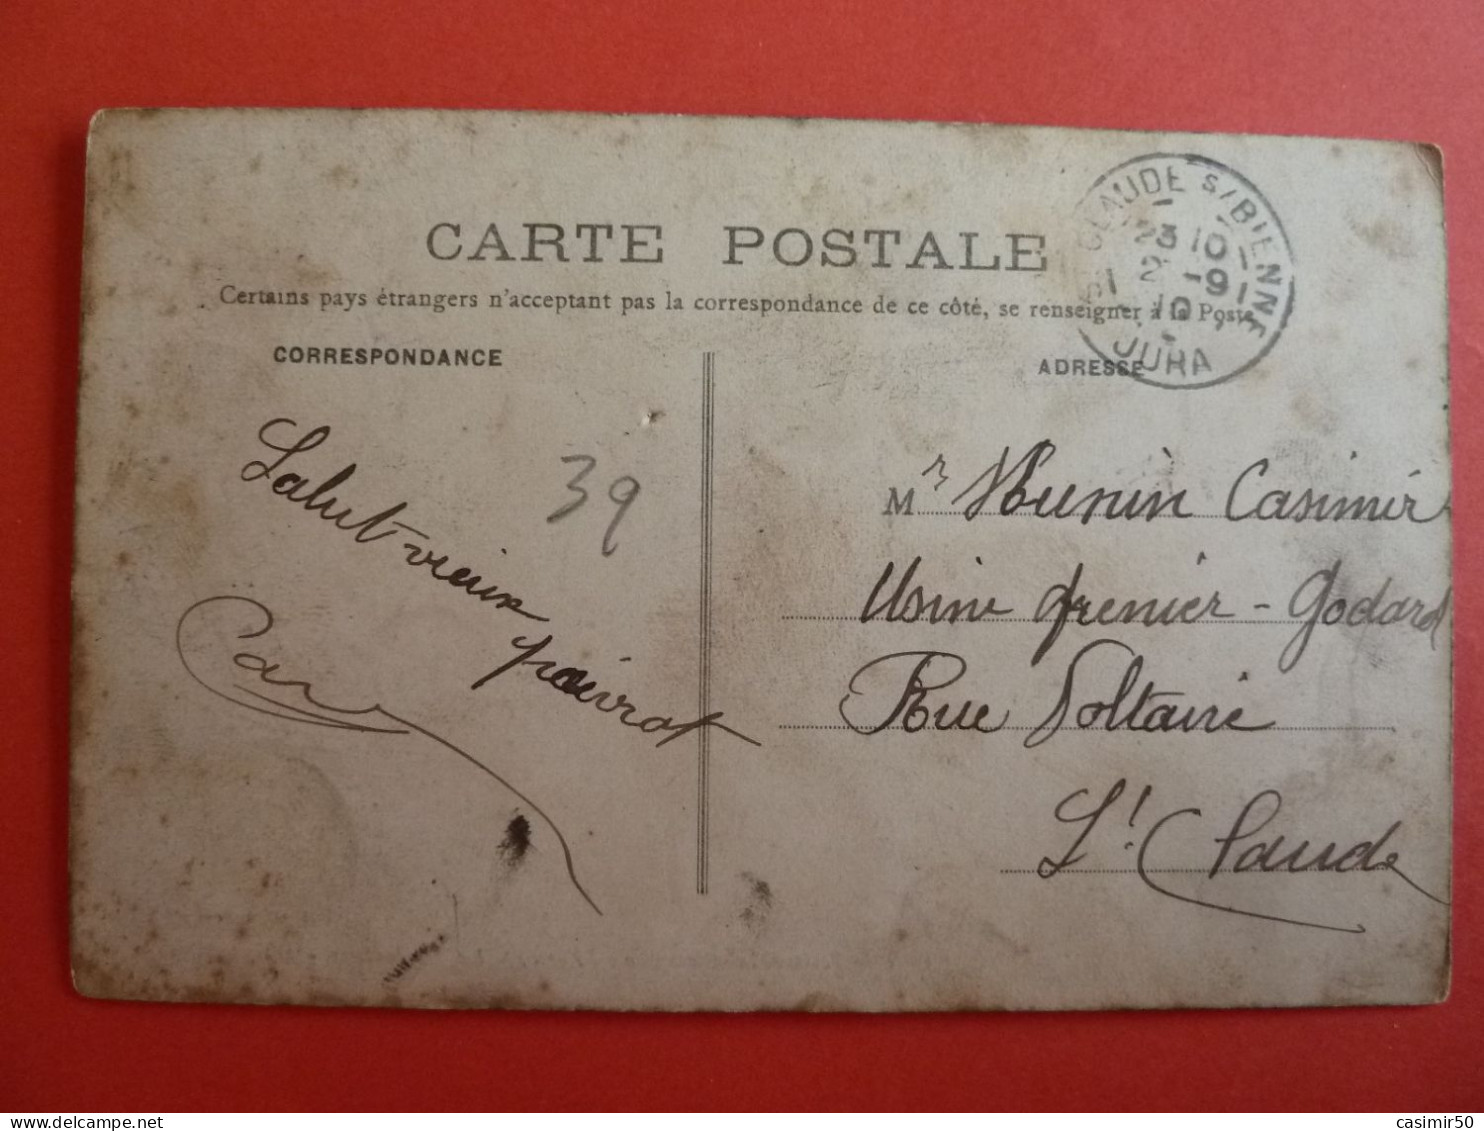 CARTE POSTALE
Certains pays étrangers n'acceptant pas la correspondance de ce côté, se renseigner à la Poste
CORRESPONDANCE
ADRESSE
ST CLAUDE S/BIENNE
23 10
2 -9
10
JURA
39
Salut vieux
poivrot
Mr Munin Casimir
Usine Grenier-Godard
Rue Voltaire
St Claude
casimir50